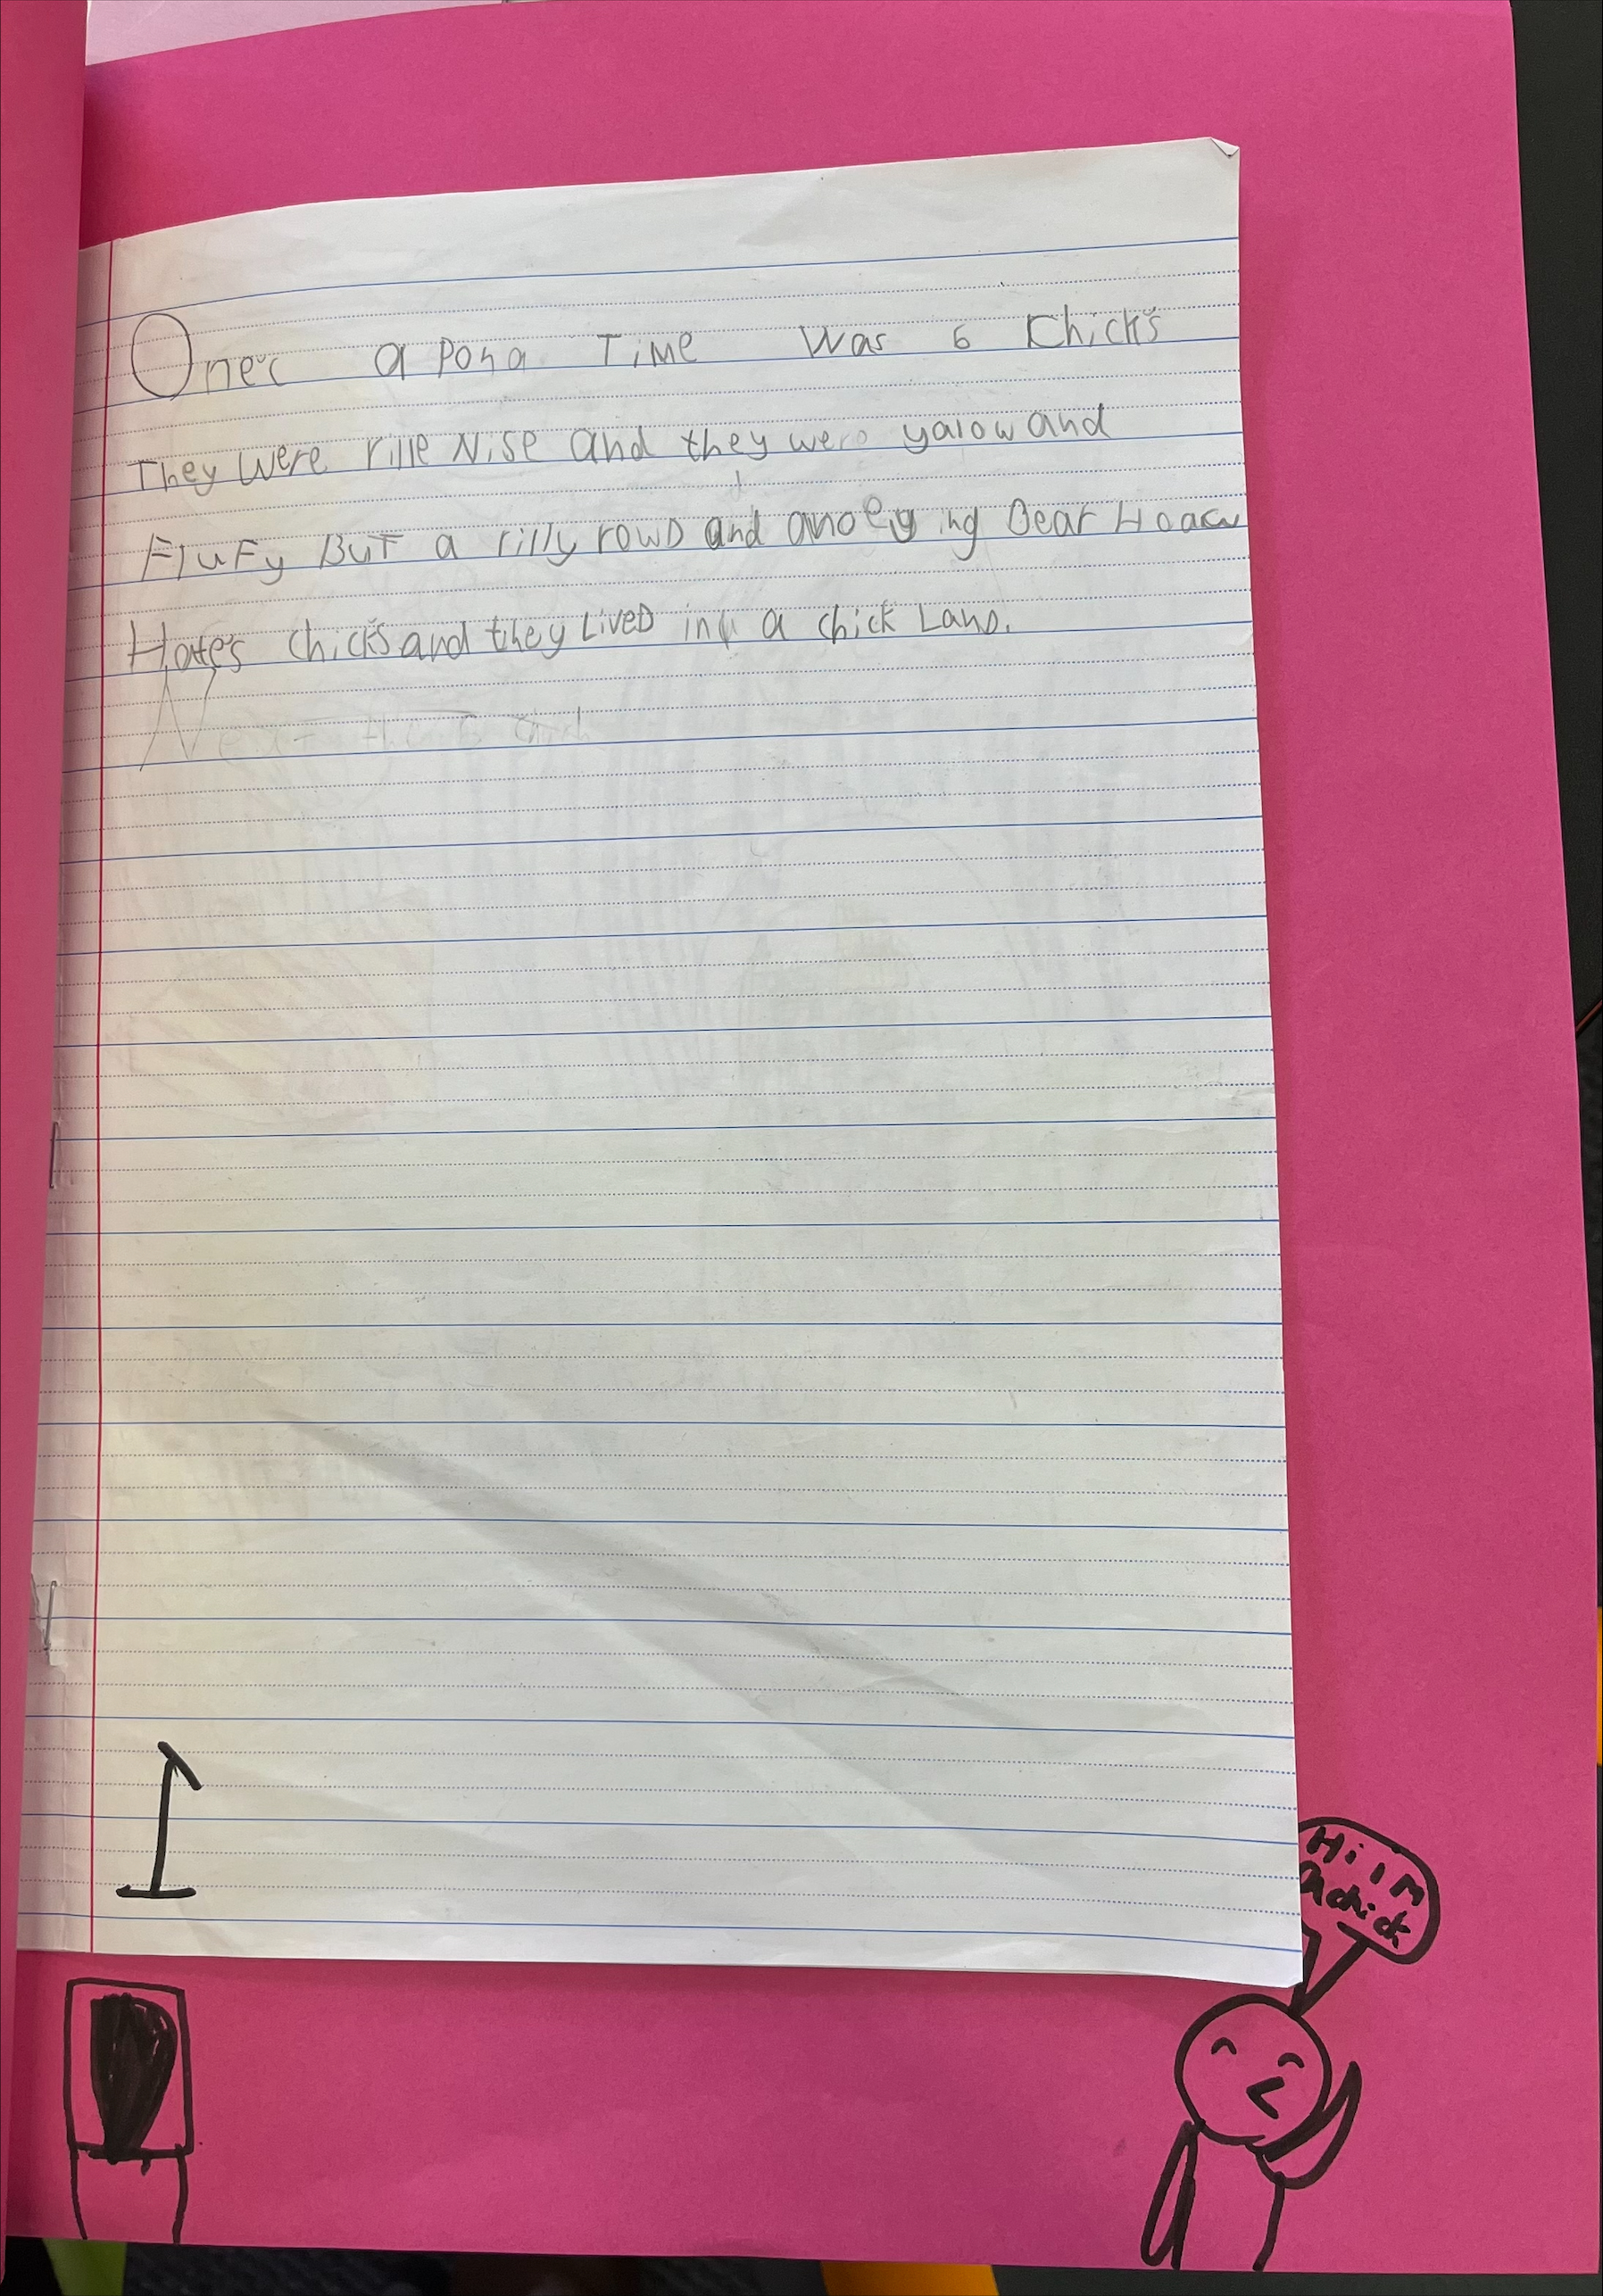 One's a pona Time Was 6 Chick's
They were rille Nise and they were yalow and
Flufy BuT a rilly rowD and anoeying Bear Hoaw
Hate's chick's and they LiveD in a chick LanD.
Next the 6 chick
1
Hi I M
A chick